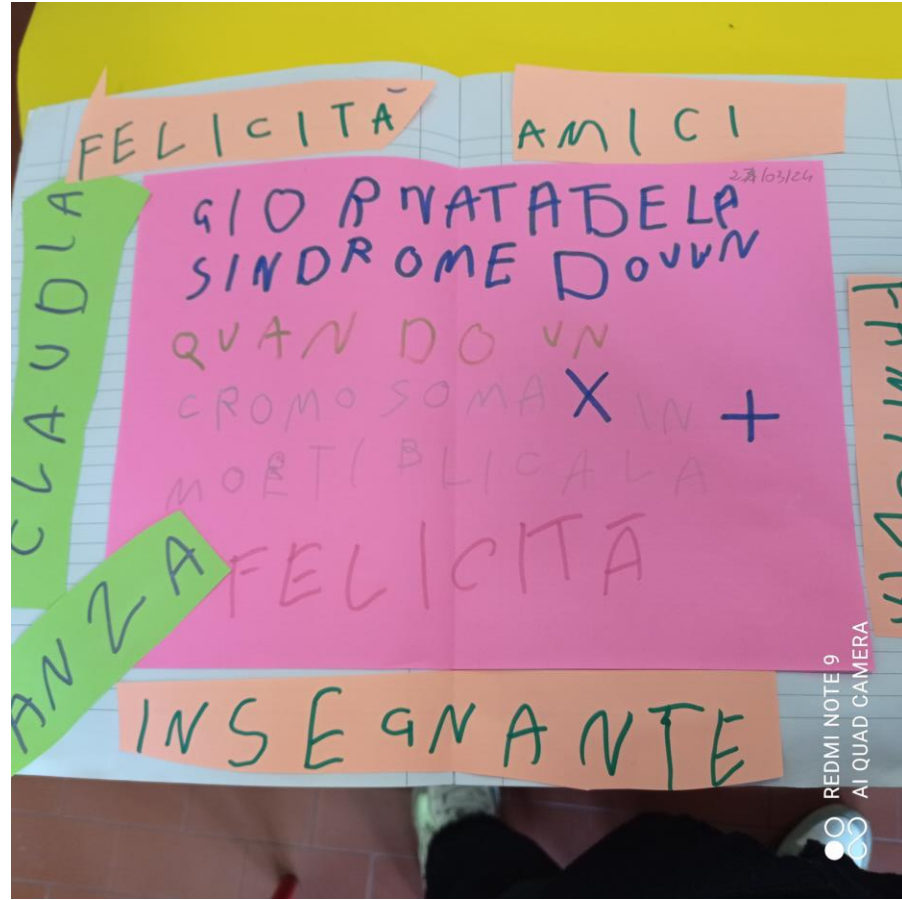 FELICITÀ
AMICI
CLAUDIA
21/03/24
GIORNATA DELA
SINDROME DOWN
QUANDO UN
CROMOSOMA X IN +
MOLTIBLICA LA
FELICITÀ
ANZA
INSEGNANTE
REDMI NOTE 9
AI QUAD CAMERA